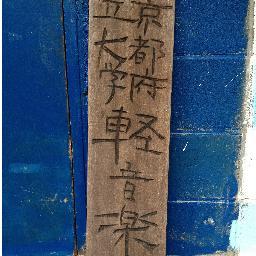 京都府
立大学
軽音楽